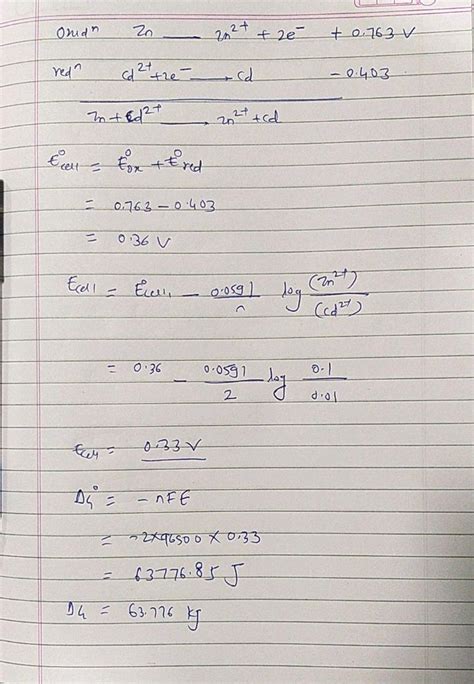 Oxidⁿ Zn — Zn²⁺ + 2e⁻ + 0.763 V
redⁿ Cd²⁺+2e⁻ — Cd - 0.403
Zn + Cd²⁺ — Zn²⁺ + Cd
E°cell = E°ox + E°red
= 0.763 - 0.403
= 0.36 V
Ecell = E°cell - 0.0591/n log (Zn²⁺)/(Cd²⁺)
= 0.36 - 0.0591/2 log 0.1/0.01
Ecell = 0.33 V
ΔG° = - nFE
= -2×96500 × 0.33
= 63776.85 J
ΔG = 63.776 kJ